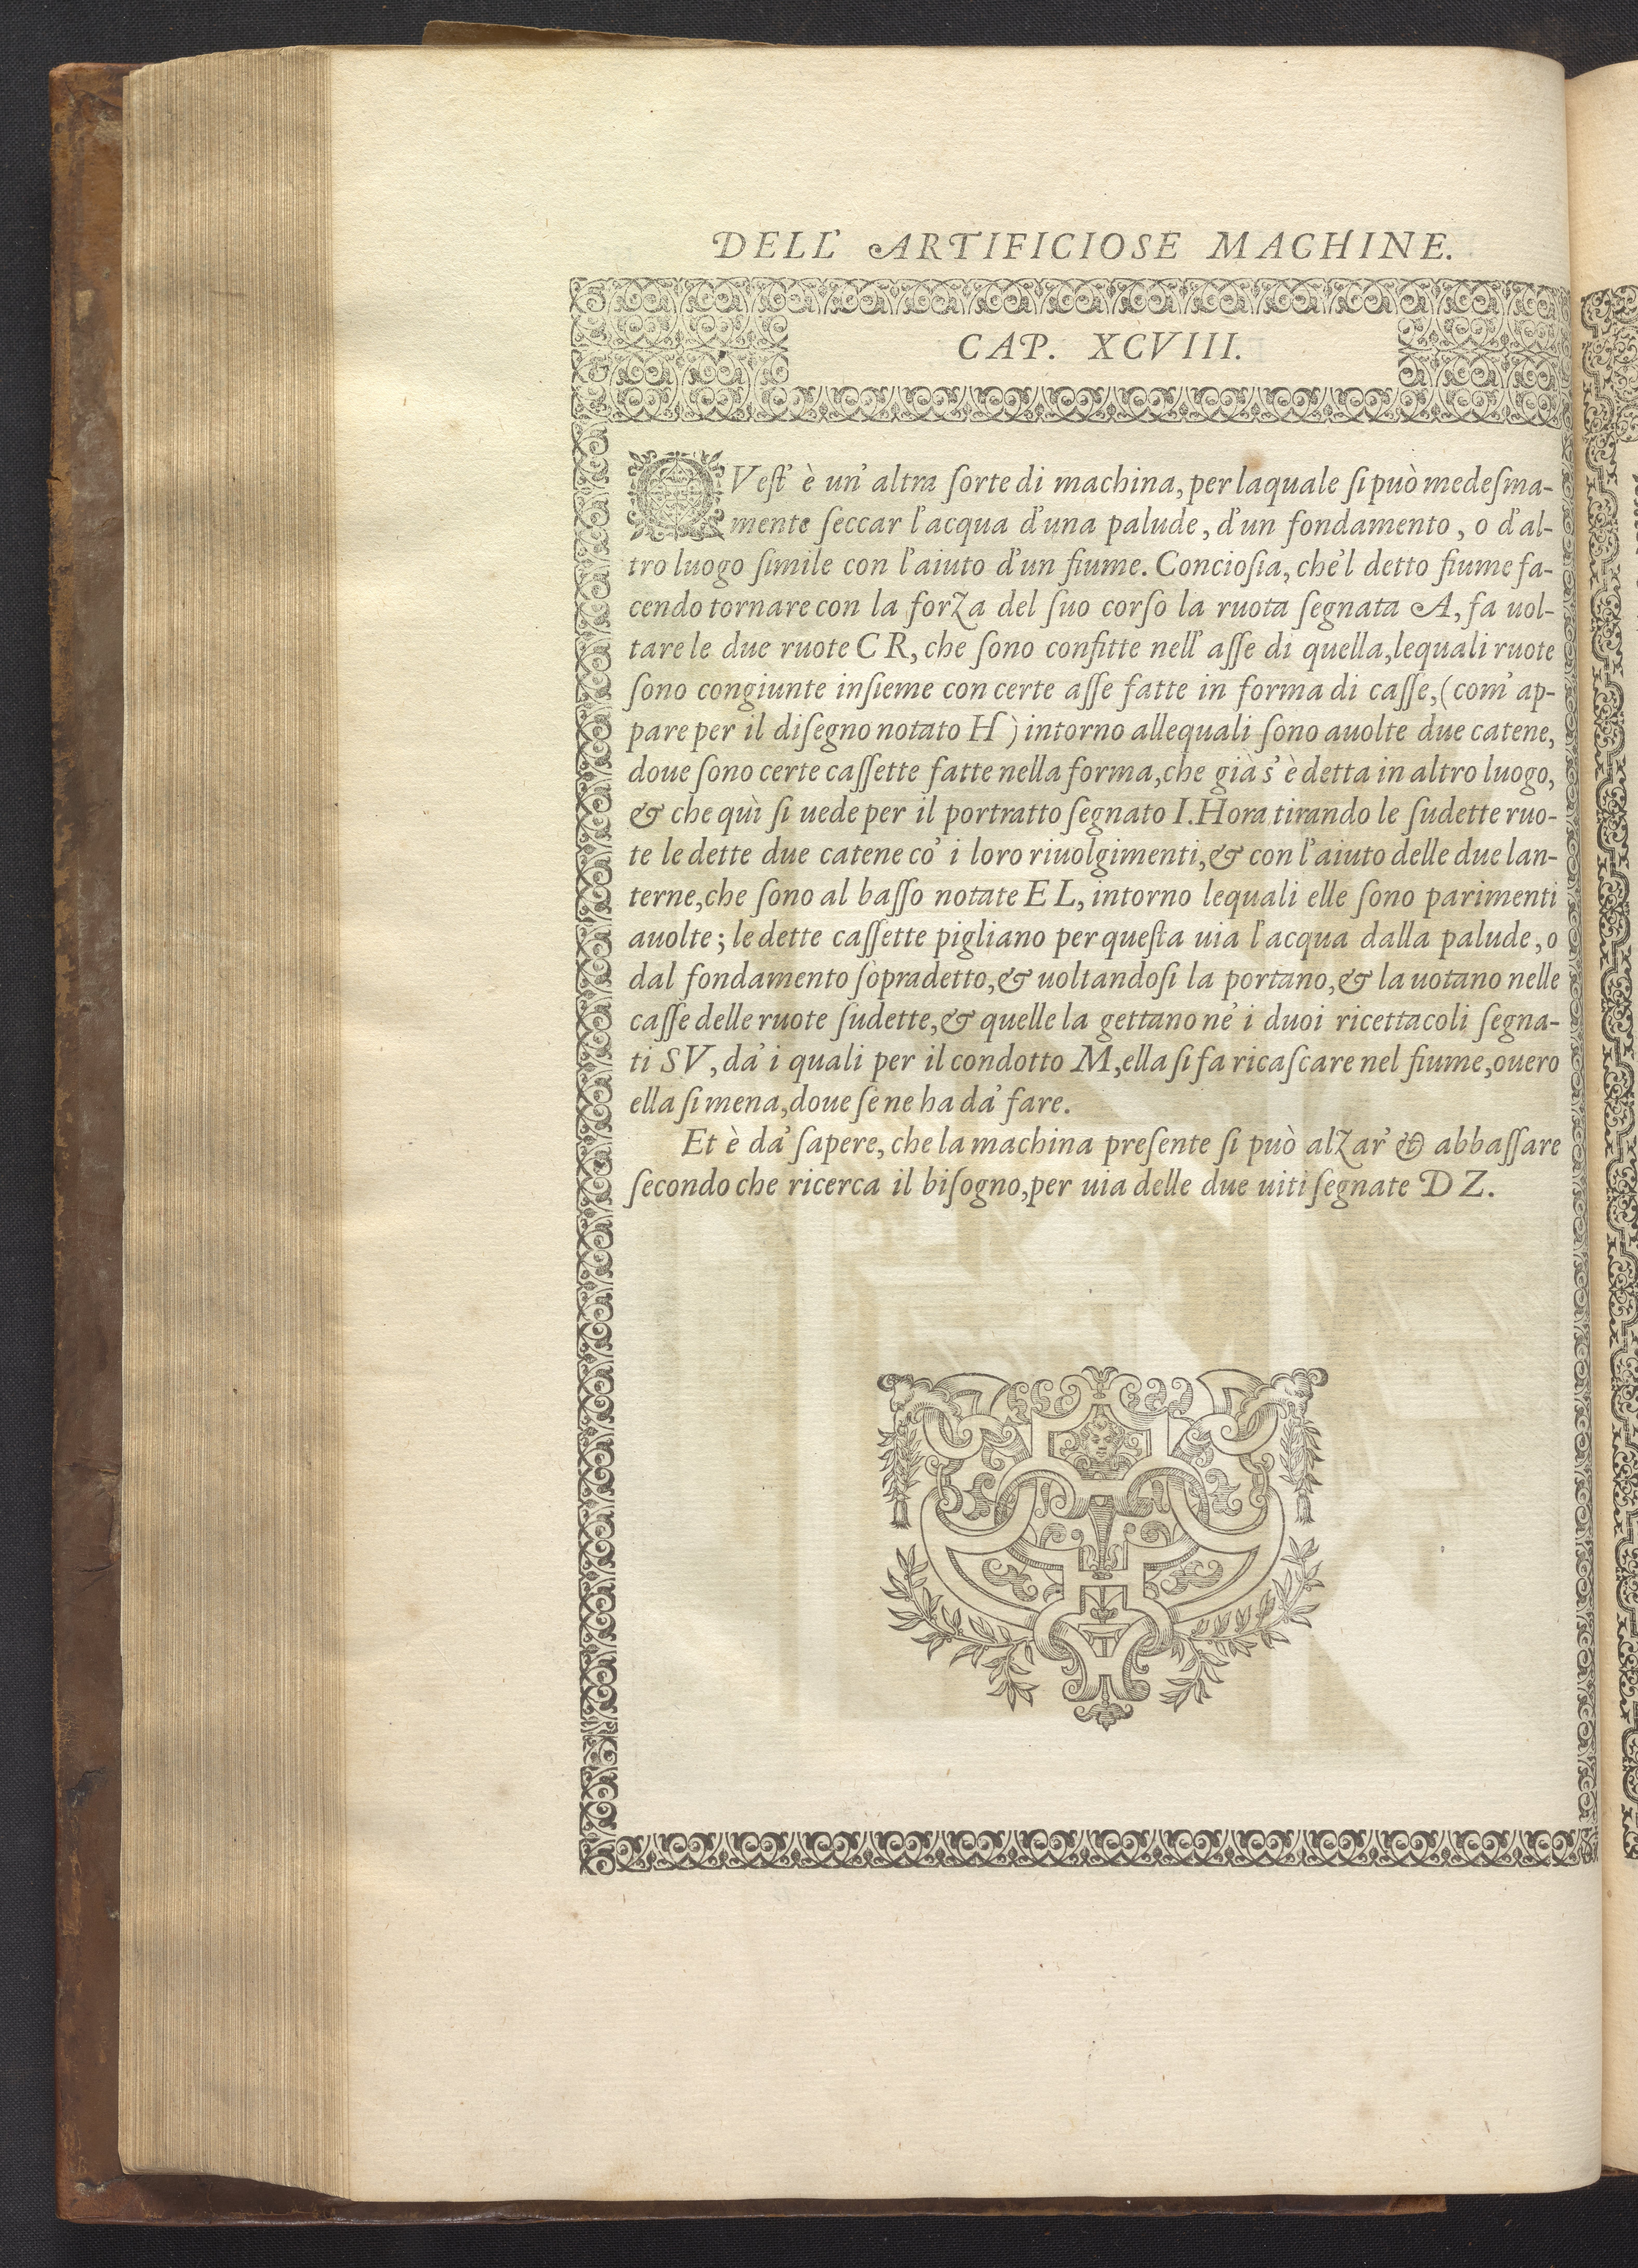 DELL' ARTIFICIOSE MACHINE.
CAP. XCVIII.
QVest' è un' altra sorte di machina, per laquale si può medesma-
mente seccar l'acqua d'una palude, d'un fondamento, o d'al-
tro luogo simile con l'aiuto d'un fiume. Conciosia, che'l detto fiume fa-
cendo tornare con la forza del suo corso la ruota segnata A, fa uol-
tare le due ruote C R, che sono confitte nell' asse di quella, lequali ruote
sono congiunte insieme con certe asse fatte in forma di casse, (com' ap-
pare per il disegno notato H) intorno allequali sono auolte due catene,
doue sono certe cassette fatte nella forma, che già s' è detta in altro luogo,
& che quì si uede per il portratto segnato I. Hora tirando le sudette ruo-
te le dette due catene co' i loro riuolgimenti, & con l'aiuto delle due lan-
terne, che sono al basso notate E L, intorno lequali elle sono parimenti
auolte; le dette cassette pigliano per questa uia l'acqua dalla palude, o
dal fondamento sopradetto, & uoltandosi la portano, & la uotano nelle
casse delle ruote sudette, & quelle la gettano ne' i duoi ricettacoli segna-
ti SV, da' i quali per il condotto M, ella si fa ricascare nel fiume, ouero
ella si mena, doue se ne ha da' fare.
Et è da' sapere, che la machina presente si può alzar' & abbassare
secondo che ricerca il bisogno, per uia delle due uiti segnate D Z.